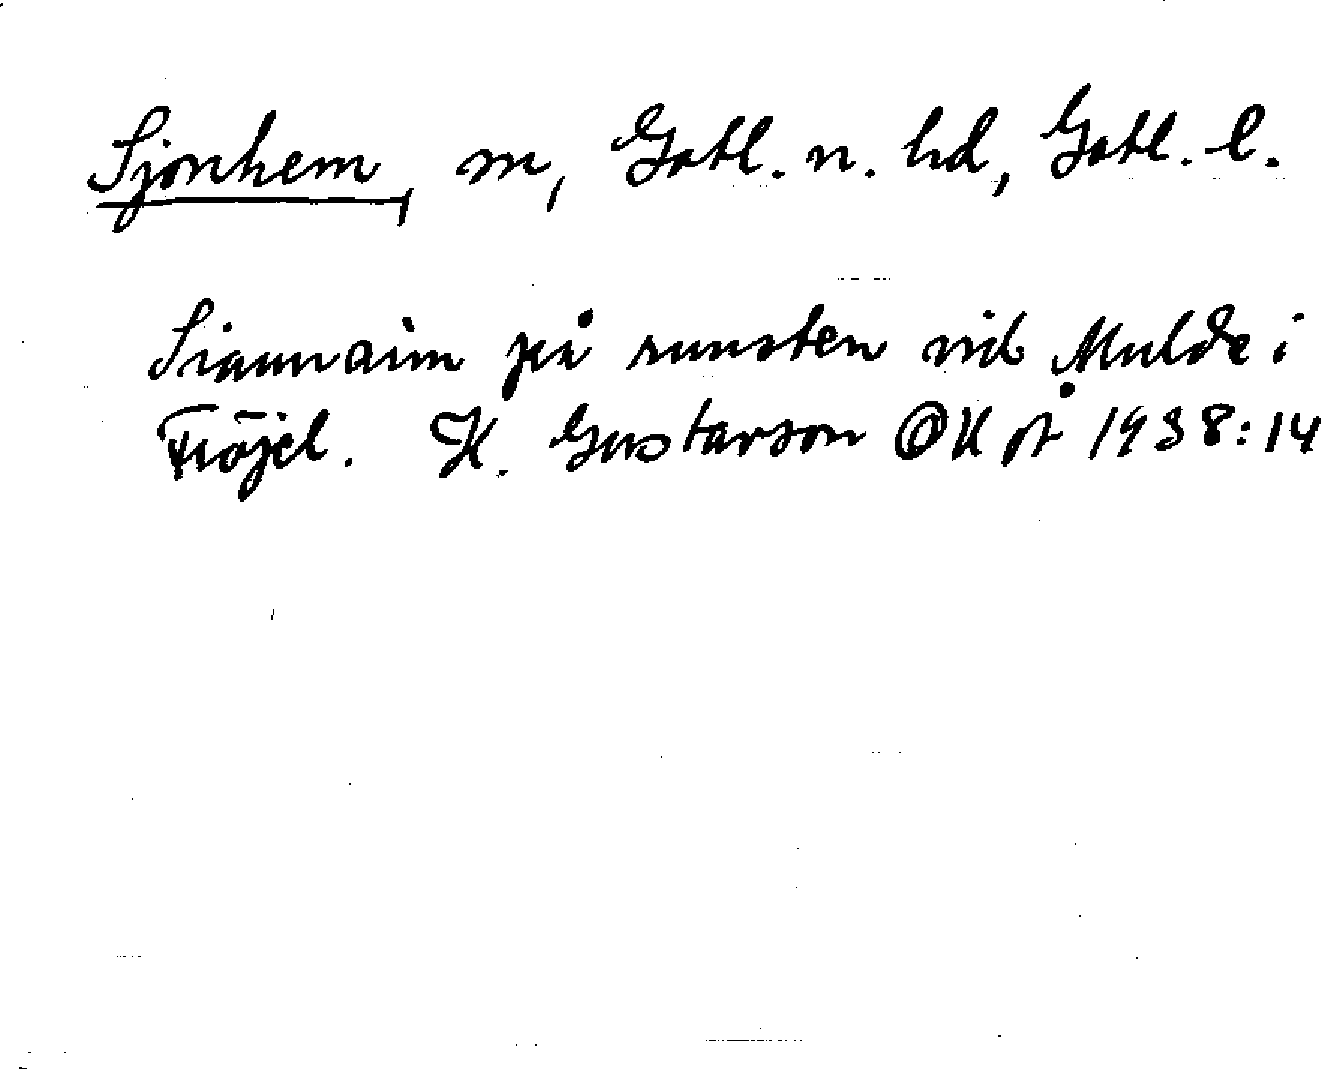 Sjonhem, sn, Gotl. n. hd, Gotl. l.
Siaunaim på runsten vid Mulde i
Fröjel. H. Gustavson OKå 1938:14